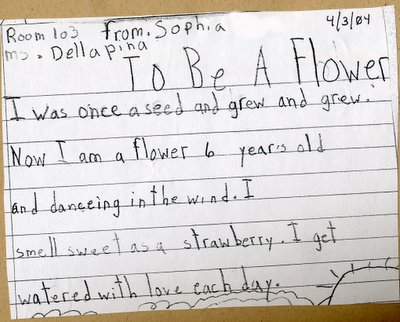 Room 103 from. Sophia 4/3/04
ms. Dellapina
To Be A Flower
I was once a seed and grew and grew.
Now I am a flower 6 year's old
and danceing in the wind. I
smell sweet as a strawberry. I get
watered with love each day.